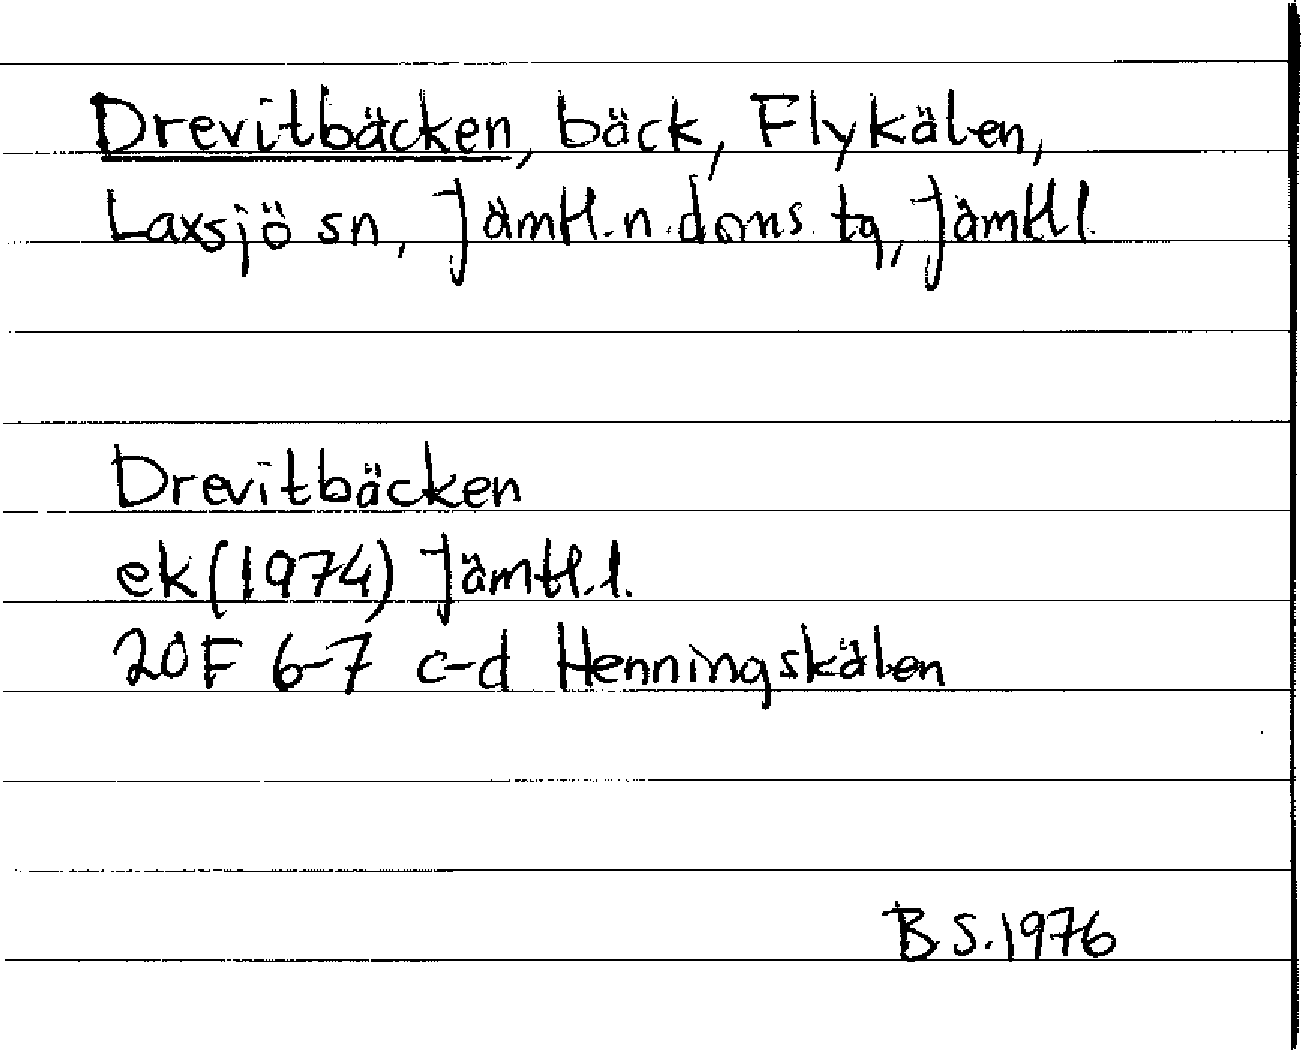 Drevitbäcken, bäck, Flykälen,
Laxsjö sn, Jämtl.n.doms.tg, Jämtl l.
Drevitbäcken
ek(1974) Jämtl.l.
20F 6-7 c-d Henningskälen
B S.1976